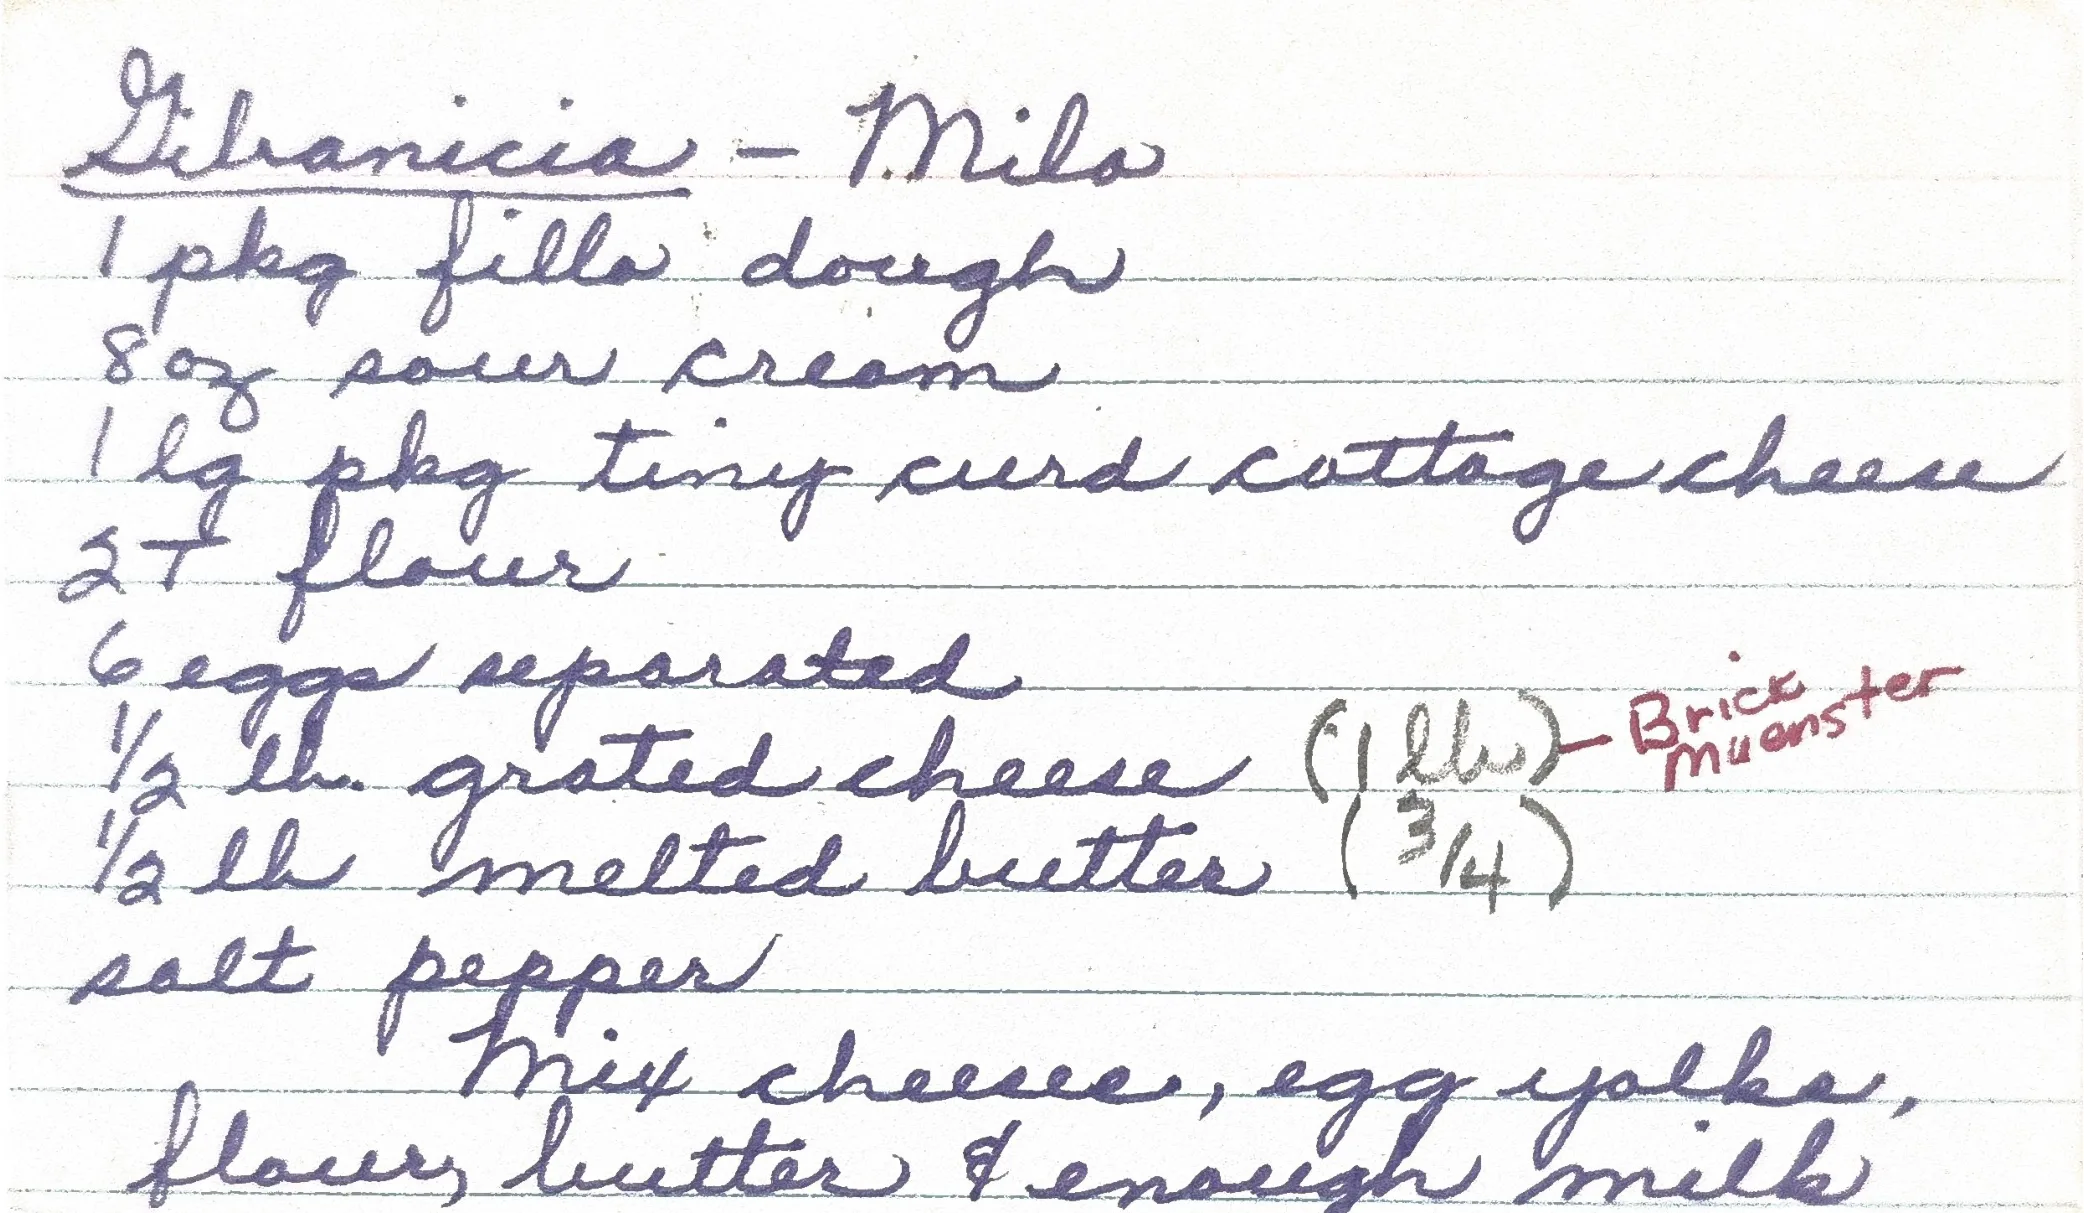 Gibanicia - Mila
1 pkg filla dough
8 oz sour cream
1 lg pkg tiny curd cottage cheese
2 T flour
6 eggs separated
1/2 lb. grated cheese (1 lb) - Brick Muenster
1/2 lb melted butter (3/4)
salt pepper
Mix cheeses, egg yolks,
flour, butter & enough milk